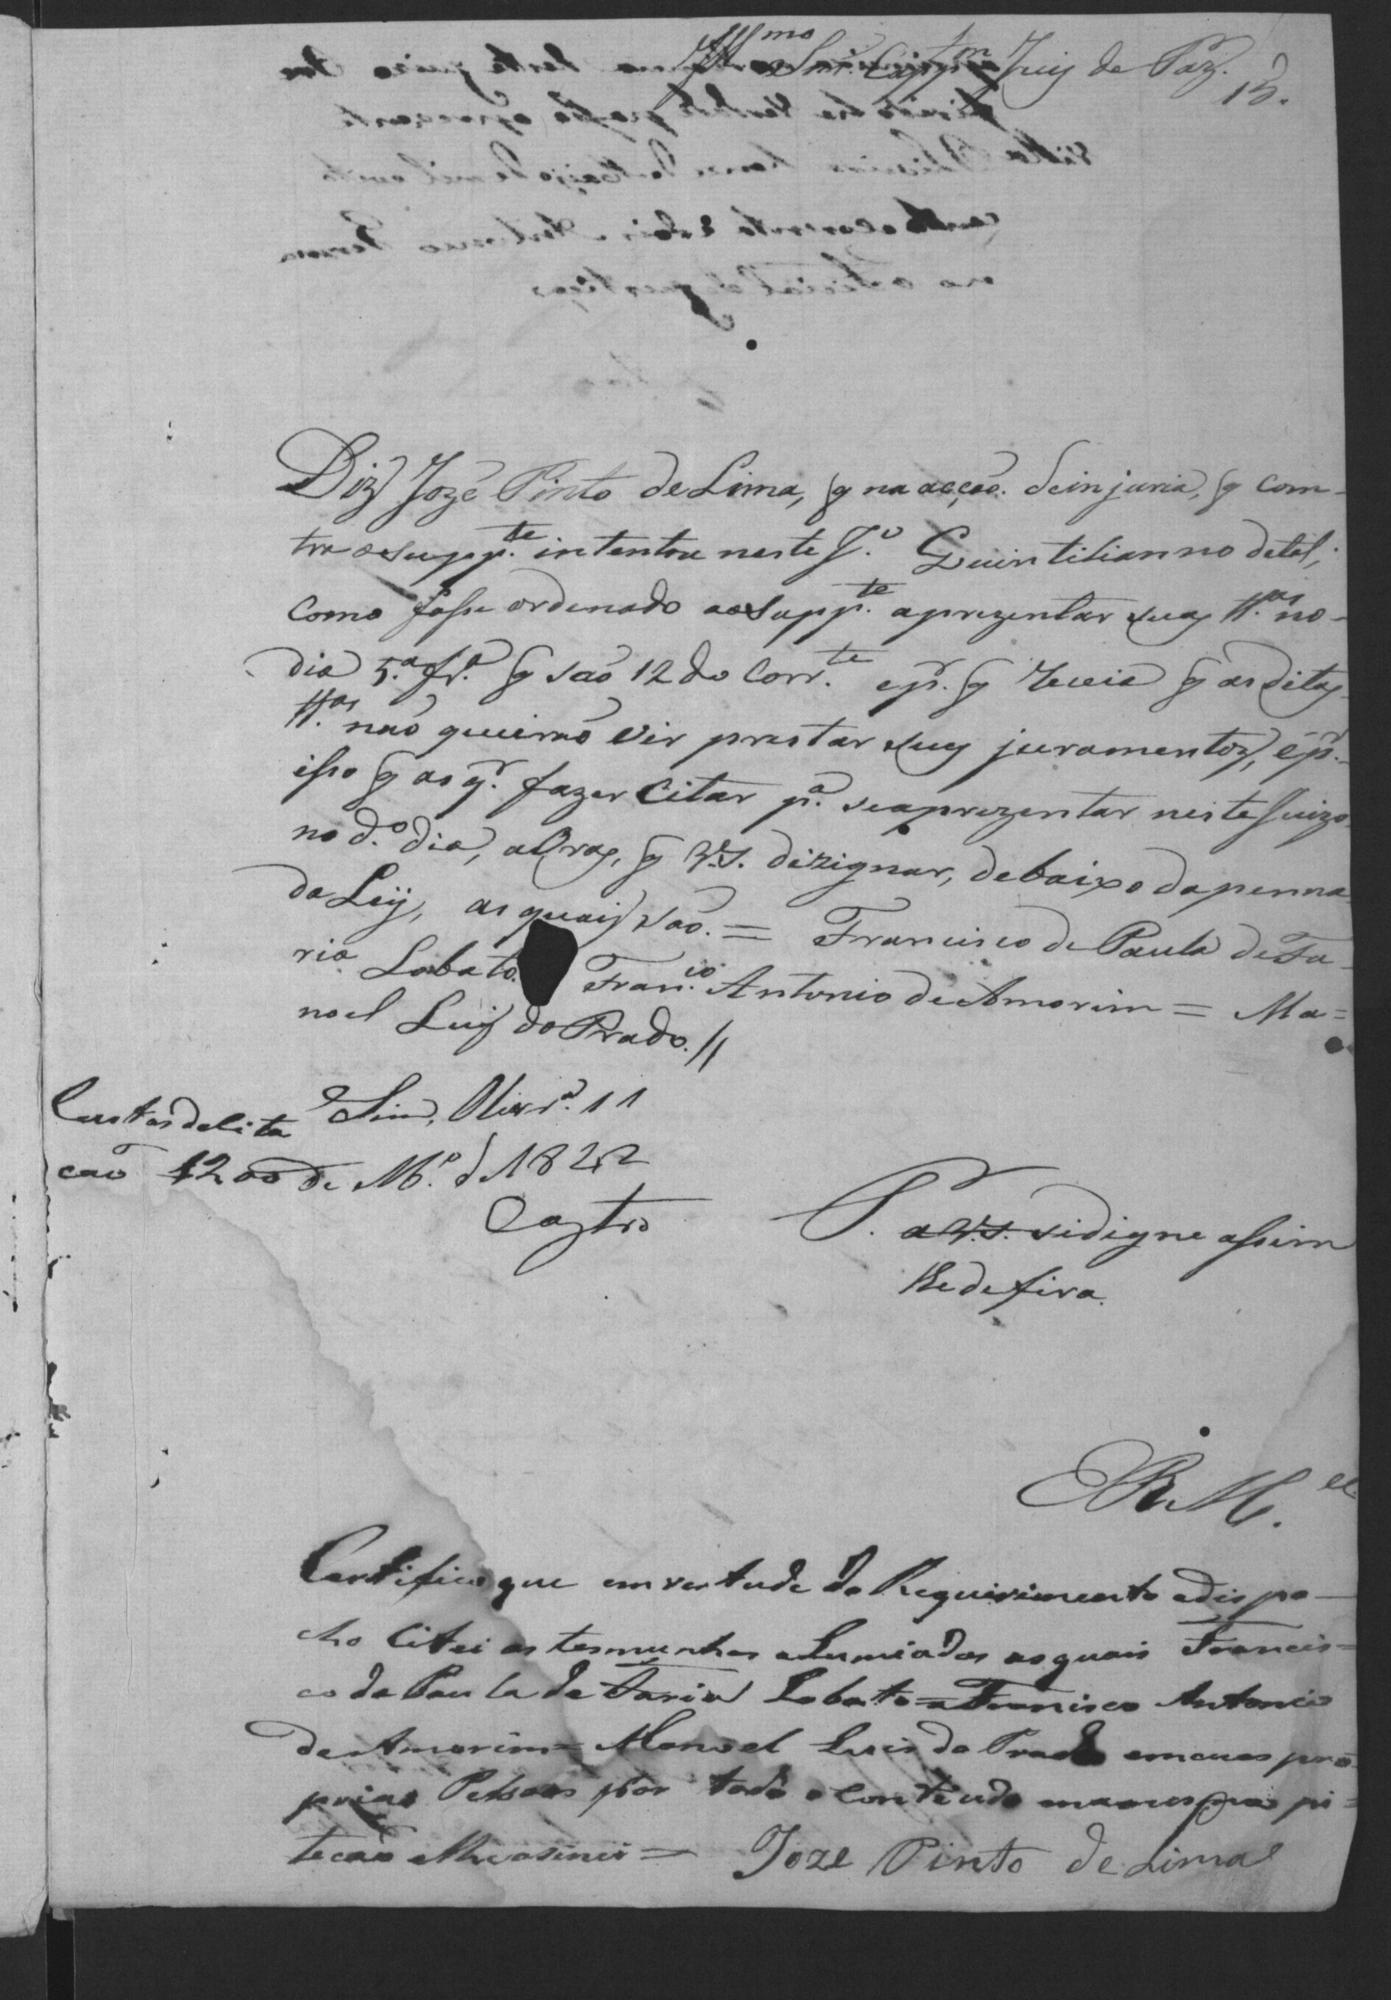 Illmo Snr. Cappm Juiz de Paz.
13.
Diz Jozé Pinto de Lima, q na acção. de injuria, q com-
tra o suppte. intentou neste J.o Quintilianno de tal;
como fosse ordenado ao suppte. aprezentar suas tt.as no-
dia 5.a fr.a q são 12 do Corr.te e pr. q receia q as ditas
tt.as não queirão vir prestar seus juramentos, e pr.
isso q as qr. fazer Citar pa. se aprezentar neste Juizo
no d.o dia, a Oras, q V.S. dizignar, debaixo da penna
da Ley, as quais são. = Francisco de Paula de Fa-
ria Lobato. Fran.co Antonio de Amorim = Ma=
noel Luis do Prado. //
Custas da Cita
ção 1200
Sim, Olivr.a 11
de M.o d 1842
Castro
P. a V.S. se digne assim
lhe defira.
E R M.ce
Certifico que em vertude do Requirimento e dispa-
cho Citei as tesmunhas alumiadas as quais Francis=
co de Paula de Faria Lobato = Francisco Antonio
de Amorim = Manoel Luis do Prado em suas pro
prias Pesoas por todo o Contiudo
Joze Pinto de Lima